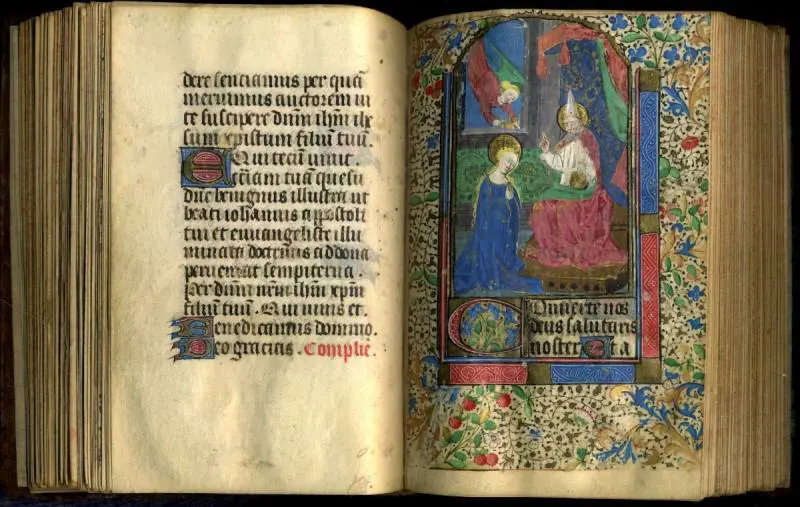 dere sentiamus per quā
meruimus auctorem ui
te suscipere dn̄m ih̄m ihe
sum xpistum filiū tuū.
Qui tecū uiuit.
Ecc̄iam tuā quesu
dn̄e benignus illustra ut
beati iohannis appostoli
tui et euuangeliste illu
minata doctrinis ad dona
perueniat sempiterna.
Per dn̄m nr̄m ih̄m xp̄m
filiū tuū. Qui uiuis et.
Benedicamus domino.
Deo gracias. Complie.
Conuerte nos
deus salutaris
noster Et a